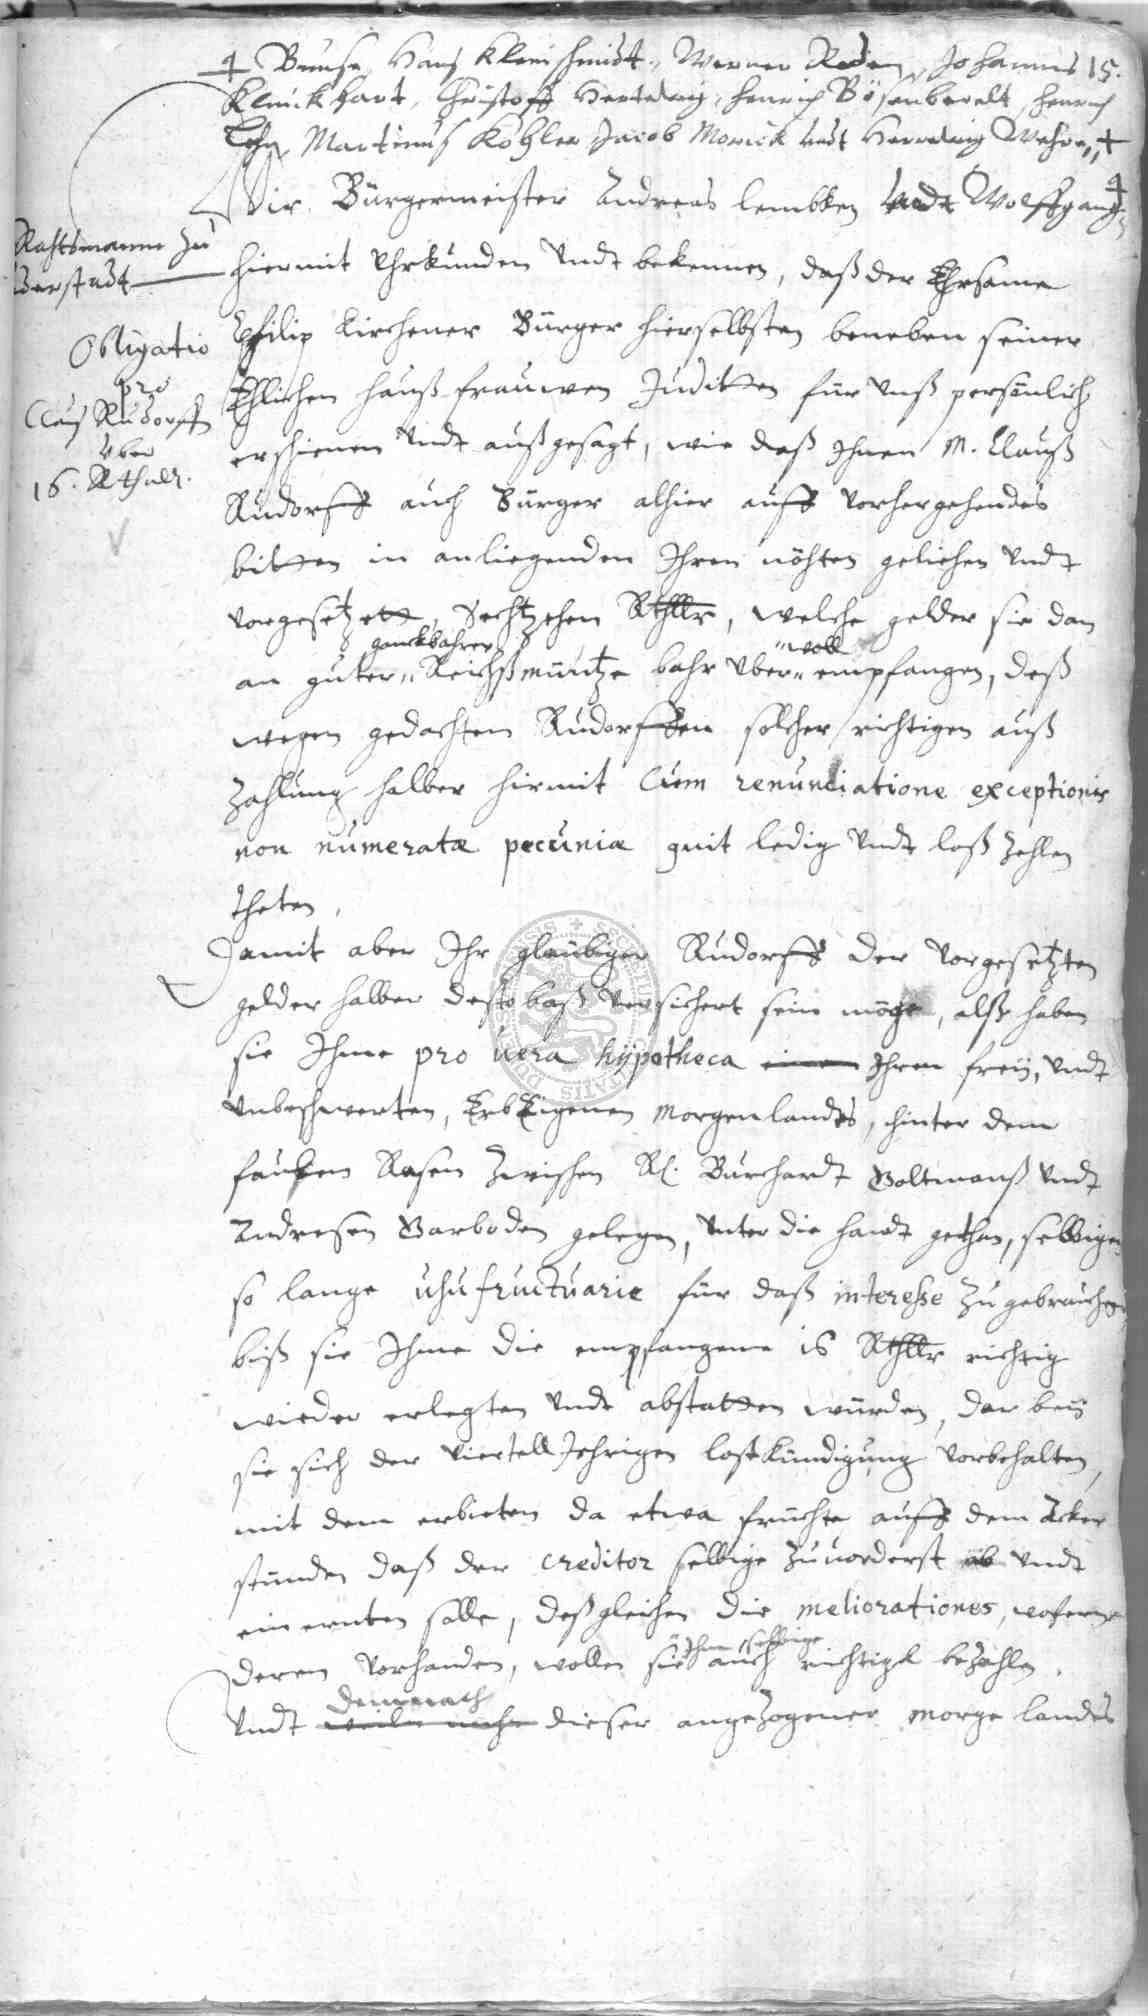 Bunse, Hans Kleinschmidt, Werner Roden, Johannes 15.
Klinckhart, Christoff Hartwig, Henrich Bösenberelt, Henrich
Martinus Köhler Jacob Morick undt
Wir Bürgermeister Andreas Lembken undt Wolffgang
Rahtsmanne zu
hiermit Uhrkunden undt bekennen, daß der Ehrsame
Philip Kirchener Bürger hierselbsten beneben seiner
Obligatio
pro
Claus Rudorff
über
16. Rthlr.
Ehlichen haußfrauwen Juditten für unß persönlich
erschienen undt außgesagt, wie daß Ihnen M. Clauß
Rudorff auch Bürger alhier auff vorhergehendes
bitten in anliegenden Ihren nöhten geliehen undt
vorgesetzett, Sechtzehen Rthllr, welche gelder sie dan
ganckbahrer voll
an guter Reichßmüntze bahr über empfangen, deß
wegen gedachten Rudorffen solcher richtigen auß
zahlung halber hirmit Cum renunciatione exceptionis
non numeratæ pecuniæ quit ledig undt loß zehlen
theten,
Damit aber Ihr glaubiger Rudorff der vorgesetzten
gelder halber desto baß versichert sein möge, alß haben
sie Ihme pro uera hÿpotheca einen Ihren freÿ, undt
unbeschwerten, ErbEigenen Morgenlandes, hinter dem
faulen Rasen zwischen Burchardt Voltmanß undt
Andresen Garboden gelegen, unter die handt gethan, selbigen
so lange usufructuarie für daß interesse zu gebrauchen
biß sie Ihme die empfangene 16 Rthllr richtig
wieder erlegten undt abstatten würden, dar beÿ
sie sich der viertellJehrigen loßkündigung vorbehalten,
mit dem erbieten da etwa früchte auff dem Acker
stunden daß der creditor selbige zuvorderst ab undt
einernten solle, deßgleichen die meliorationes, woferne
Ihm selbige
deren vorhanden, wollen sie auch richtigk bezahlen.
demnach
undt dieser angezogener morge landes